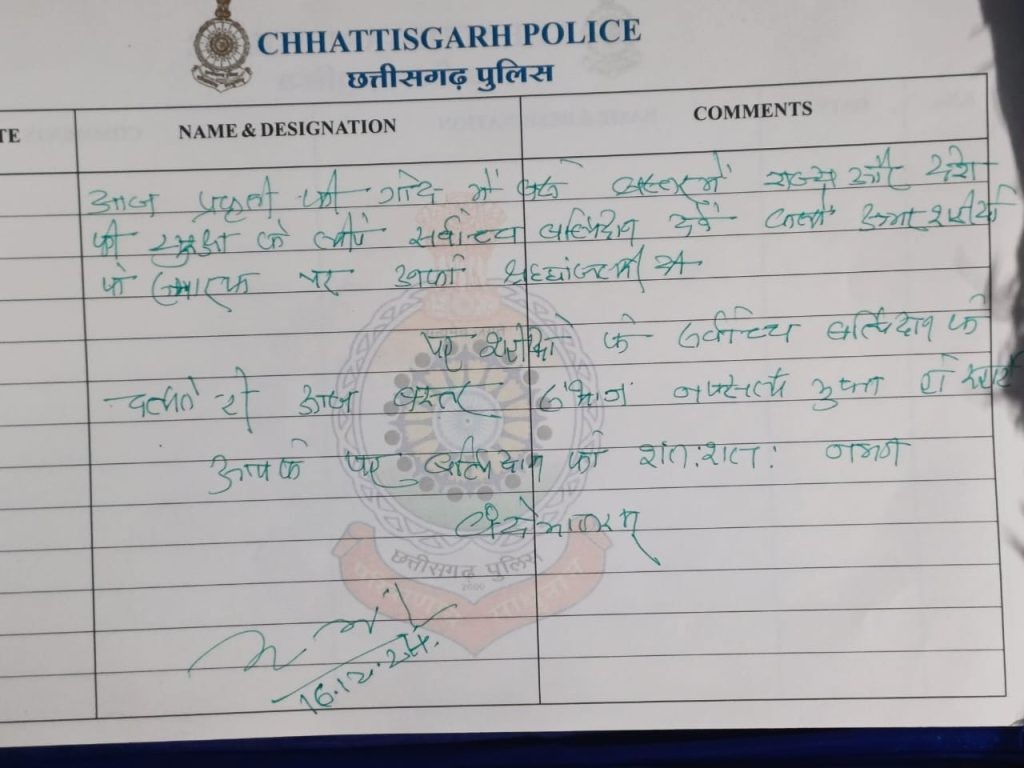 CHHATTISGARH POLICE
छत्तीसगढ़ पुलिस
TE NAME & DESIGNATION COMMENTS
आज प्रकृती की गोद में बसे बस्तर में राज्य और देश
की सुरक्षा के लीये सर्वोच्च बलिदान देने वाले अमर शहीदों
के स्मारक पर उनको श्रद्धांजली
शहीदों के सर्वोच्च बलिदान के
चलते ही आज बस्तर संभाग नक्सल मुक्त हो
आपके बलिदान को शत:शत: नमन
वंदेमातरम्
16.12.24.
छत्तीसगढ़ पुलिस
2000